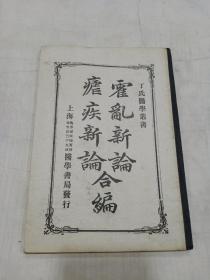 丁氏醫學叢書
霍亂新論
瘧疾新論
合編
上海
醫學書局發行